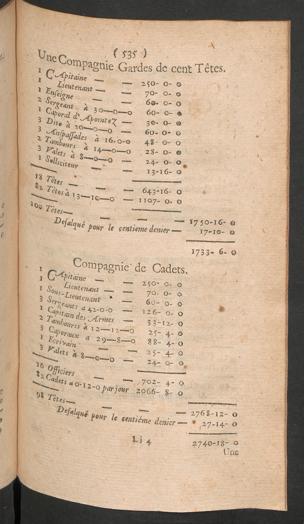 ( 535 )
Une Compagnie Gardes de cent Têtes.
1 Capitaine — — 250- 0- 0
1 Lieutenant — — 70- 0- 0
1 Enseigne — — 60- 0- 0
2 Sergeant à 30—0—0 60- 0- 0
1 Caporal d'Apointez — 30- 0- 0
3 Dito à 20—0—0 — 60- 0- 0
3 Anspassades à 16-0-0 48- 0- 0
2 Tambours à 14—0—0 28- 0- 0
3 Valets à 8—0—0 — 24- 0- 0
1 Solliciteur — — 13-16- 0
18 Têtes — — 643-16- 0
82 Têtes à 13—10—0 1107- 0- 0
100 Têtes — — — 1750-16- 0
Defalqué pour le centieme denier — 17-10- 0
1733- 6- 0
Compagnie de Cadets.
1 Capitaine — — 250- 0- 0
1 Lieutenant — — 70- 0- 0
1 Sous-Lieutenant — 60- 0- 0
3 Sergeants à 42-0-0 — 126- 0- 0
1 Capitain des Armes — 53-12- 0
2 Tambours à 12—12—0 25- 4- 0
3 Caporaux à 29—8—0 88- 4- 0
1 Ecrivain — — 25- 4- 0
3 Valets à 8—0—0 — 24- 0- 0
16 Officiers — — 702- 4- 0
82 Cadets à 0-12-0 par jour 2066- 8- 0
98 Têtes — — — 2768-12- 0
Defalqué pour le centiéme denier — 27-14- 0
2740-18- 0
Ll 4
Une